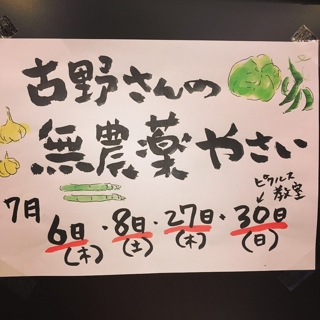 古野さんの
無農薬やさい
ピクルス教室
↓
7月 6日(木)・8日(土)・27日(木)・30日(日)